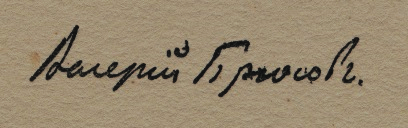 Валерій Брюсовъ.